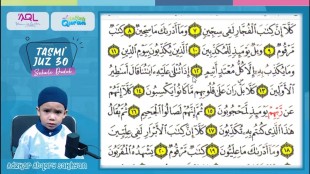 AQL
TASMI'
JUZ 30
كَلَّآ إِنَّ كِتَٰبَ ٱلْفُجَّارِ لَفِى سِجِّينٍ ٧ وَمَآ أَدْرَىٰكَ مَا سِجِّينٌ ٨ كِتَٰبٌ
مَّرْقُومٌ ٩ وَيْلٌ يَوْمَئِذٍ لِّلْمُكَذِّبِينَ ١٠ ٱلَّذِينَ يُكَذِّبُونَ بِيَوْمِ ٱلدِّينِ ١١
وَمَا يُكَذِّبُ بِهِۦٓ إِلَّا كُلُّ مُعْتَدٍ أَثِيمٍ ١٢ إِذَا تُتْلَىٰ عَلَيْهِ ءَايَٰتُنَا قَالَ أَسَٰطِيرُ
ٱلْأَوَّلِينَ ١٣ كَلَّا بَلْ رَانَ عَلَىٰ قُلُوبِهِم مَّا كَانُوا۟ يَكْسِبُونَ ١٤ كَلَّآ إِنَّهُمْ
عَن رَّبِّهِمْ يَوْمَئِذٍ لَّمَحْجُوبُونَ ١٥ ثُمَّ إِنَّهُمْ لَصَالُوا۟ ٱلْجَحِيمِ ١٦ ثُمَّ يُقَالُ
هَٰذَا ٱلَّذِى كُنتُم بِهِۦ تُكَذِّبُونَ ١٧ كَلَّآ إِنَّ كِتَٰبَ ٱلْأَبْرَارِ لَفِى عِلِّيِّينَ
١٨ وَمَآ أَدْرَىٰكَ مَا عِلِّيُّونَ ١٩ كِتَٰبٌ مَّرْقُومٌ ٢٠ يَشْهَدُهُ ٱلْمُقَرَّبُونَ